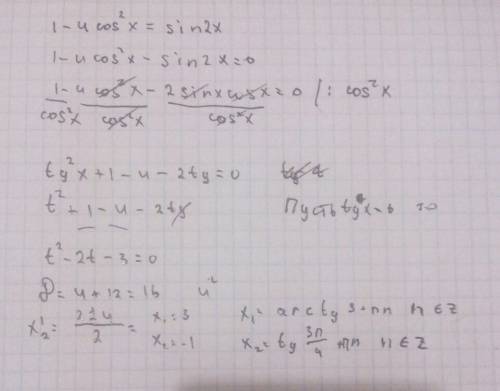 1 - 4 cos²x = sin2x
1 - 4 cos²x - sin2x = 0
1/cos²x - 4 cos²x/cos²x - 2 sinx cosx/cos²x = 0 /: cos²x
tg²x + 1 - 4 - 2tg = 0
t² + 1 - 4 - 2tg Пусть tg x = t то
t² - 2t - 3 = 0
D = 4 + 12 = 16 4²
x½ = (2 ± 4)/2 = x₁ = 3 x₁ = arctg 3 + πn n ∈ Z
x₂ = -1 x₂ = tg 3π/4 πn n ∈ Z